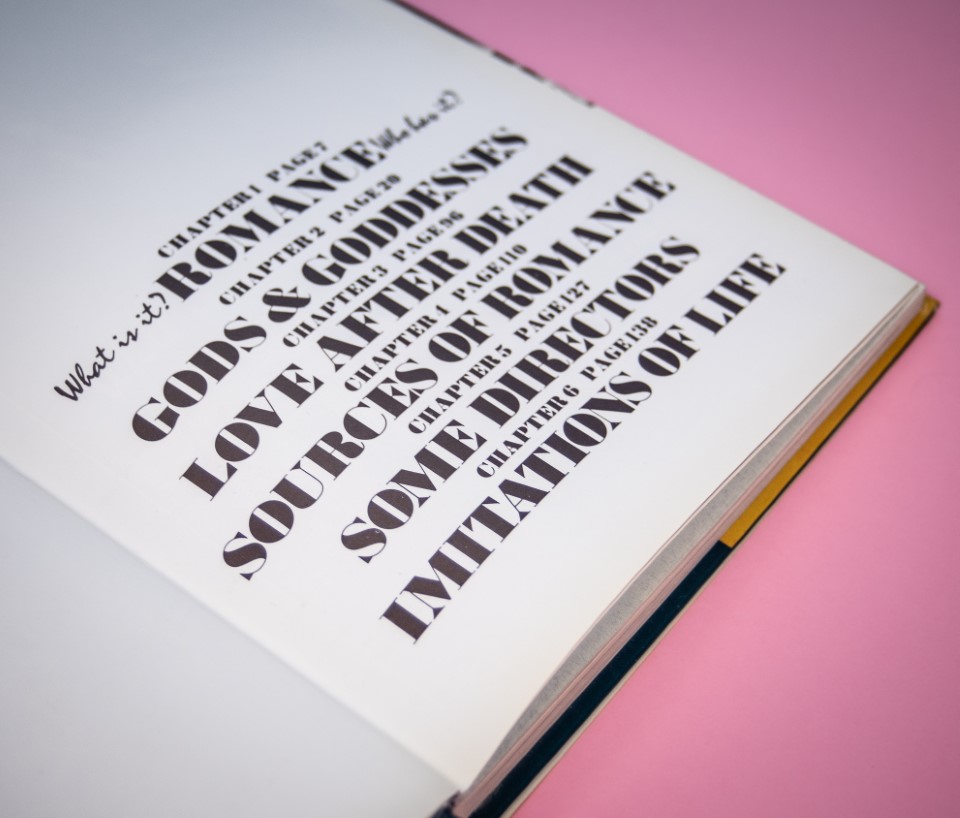 CHAPTER 1 PAGE 7
What is it? ROMANCE Who has it?
CHAPTER 2 PAGE 20
GODS & GODDESSES
CHAPTER 3 PAGE 96
LOVE AFTER DEATH
CHAPTER 4 PAGE 110
SOURCES OF ROMANCE
CHAPTER 5 PAGE 127
SOME DIRECTORS
CHAPTER 6 PAGE 138
IMITATIONS OF LIFE